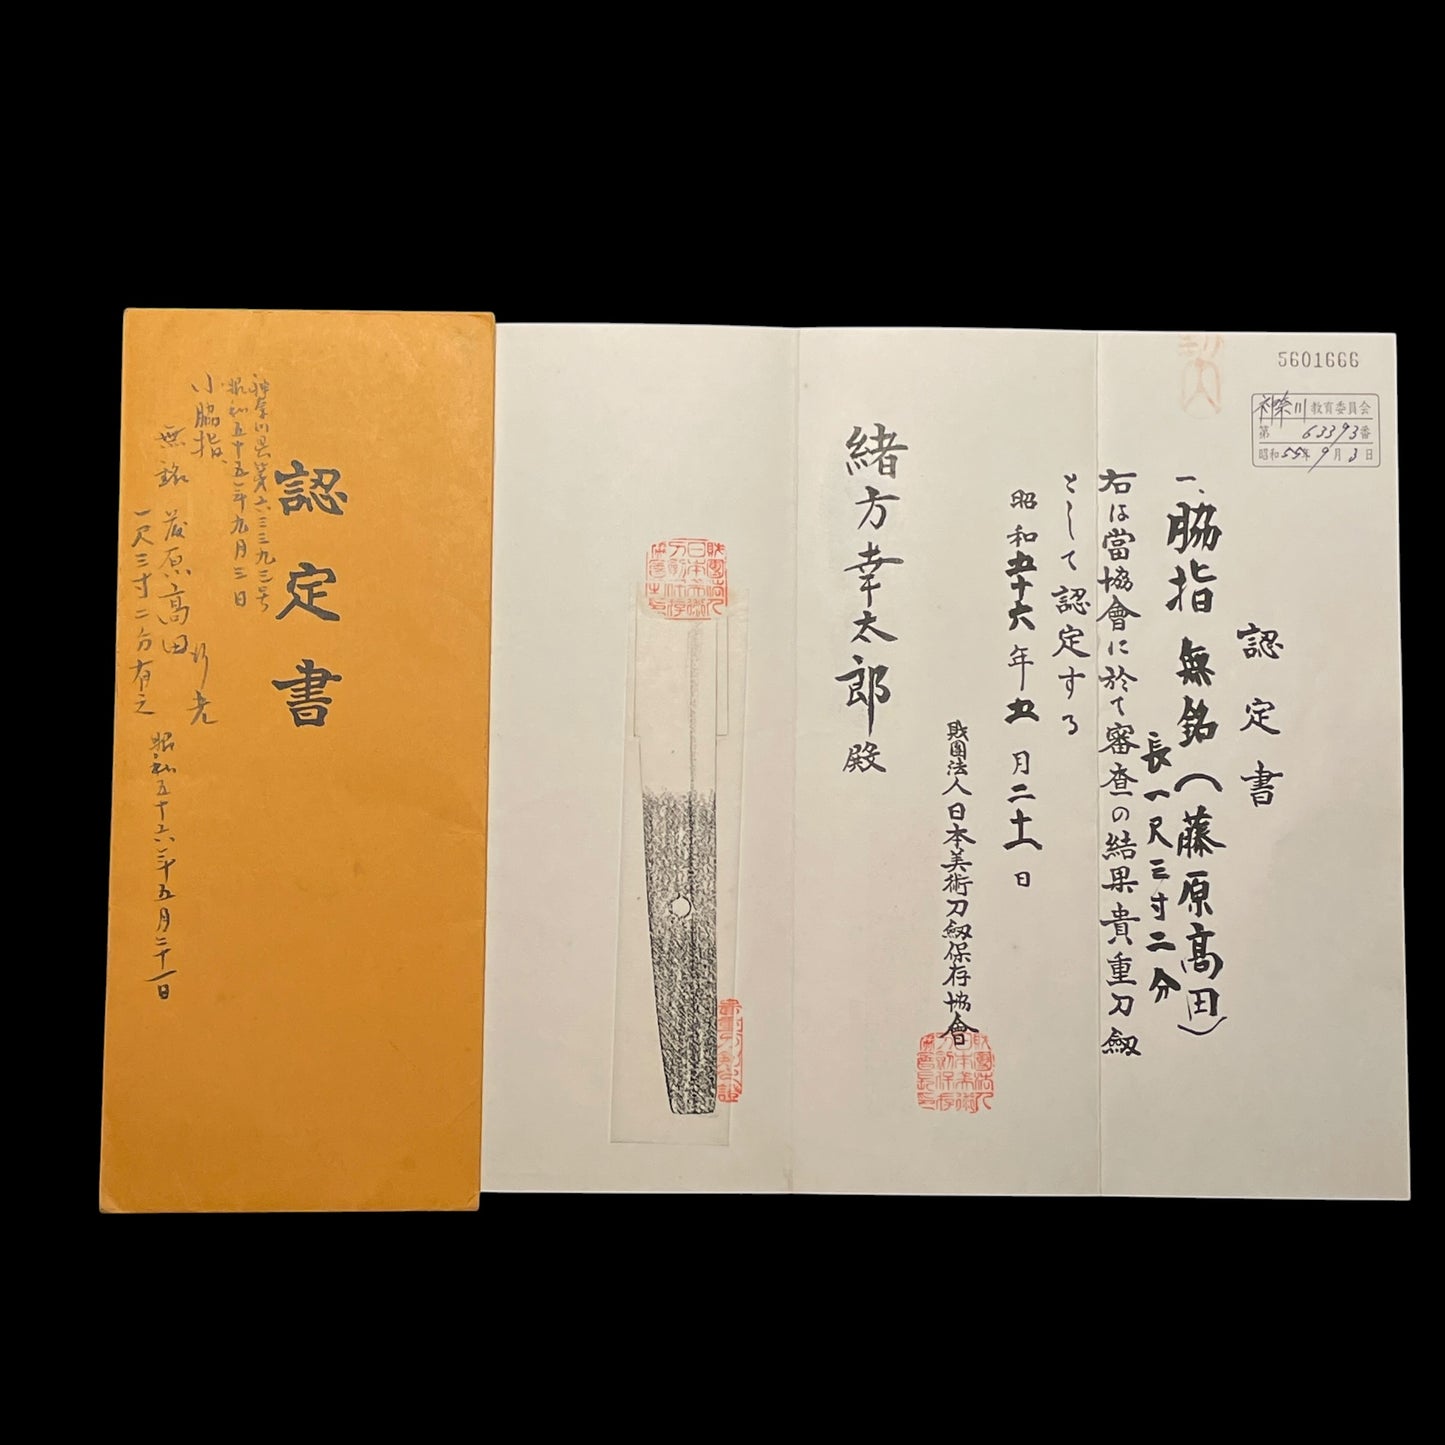 5601666
神奈川教育委員会
第63393番
昭和55年9月3日
認定書
一、脇指 無銘(藤原高田)
長一尺三寸二分
右は當協會に於て審査の結果貴重刀剱
として認定する
昭和五十六年五月二十一日
財團法人日本美術刀剱保存協會
緒方幸太郎殿
認定書
神奈川県第六三三九三号
昭和五十五年九月三日
小脇指、
無銘 藤原高田
一尺三寸二分有之
昭和五十六年五月二十一日